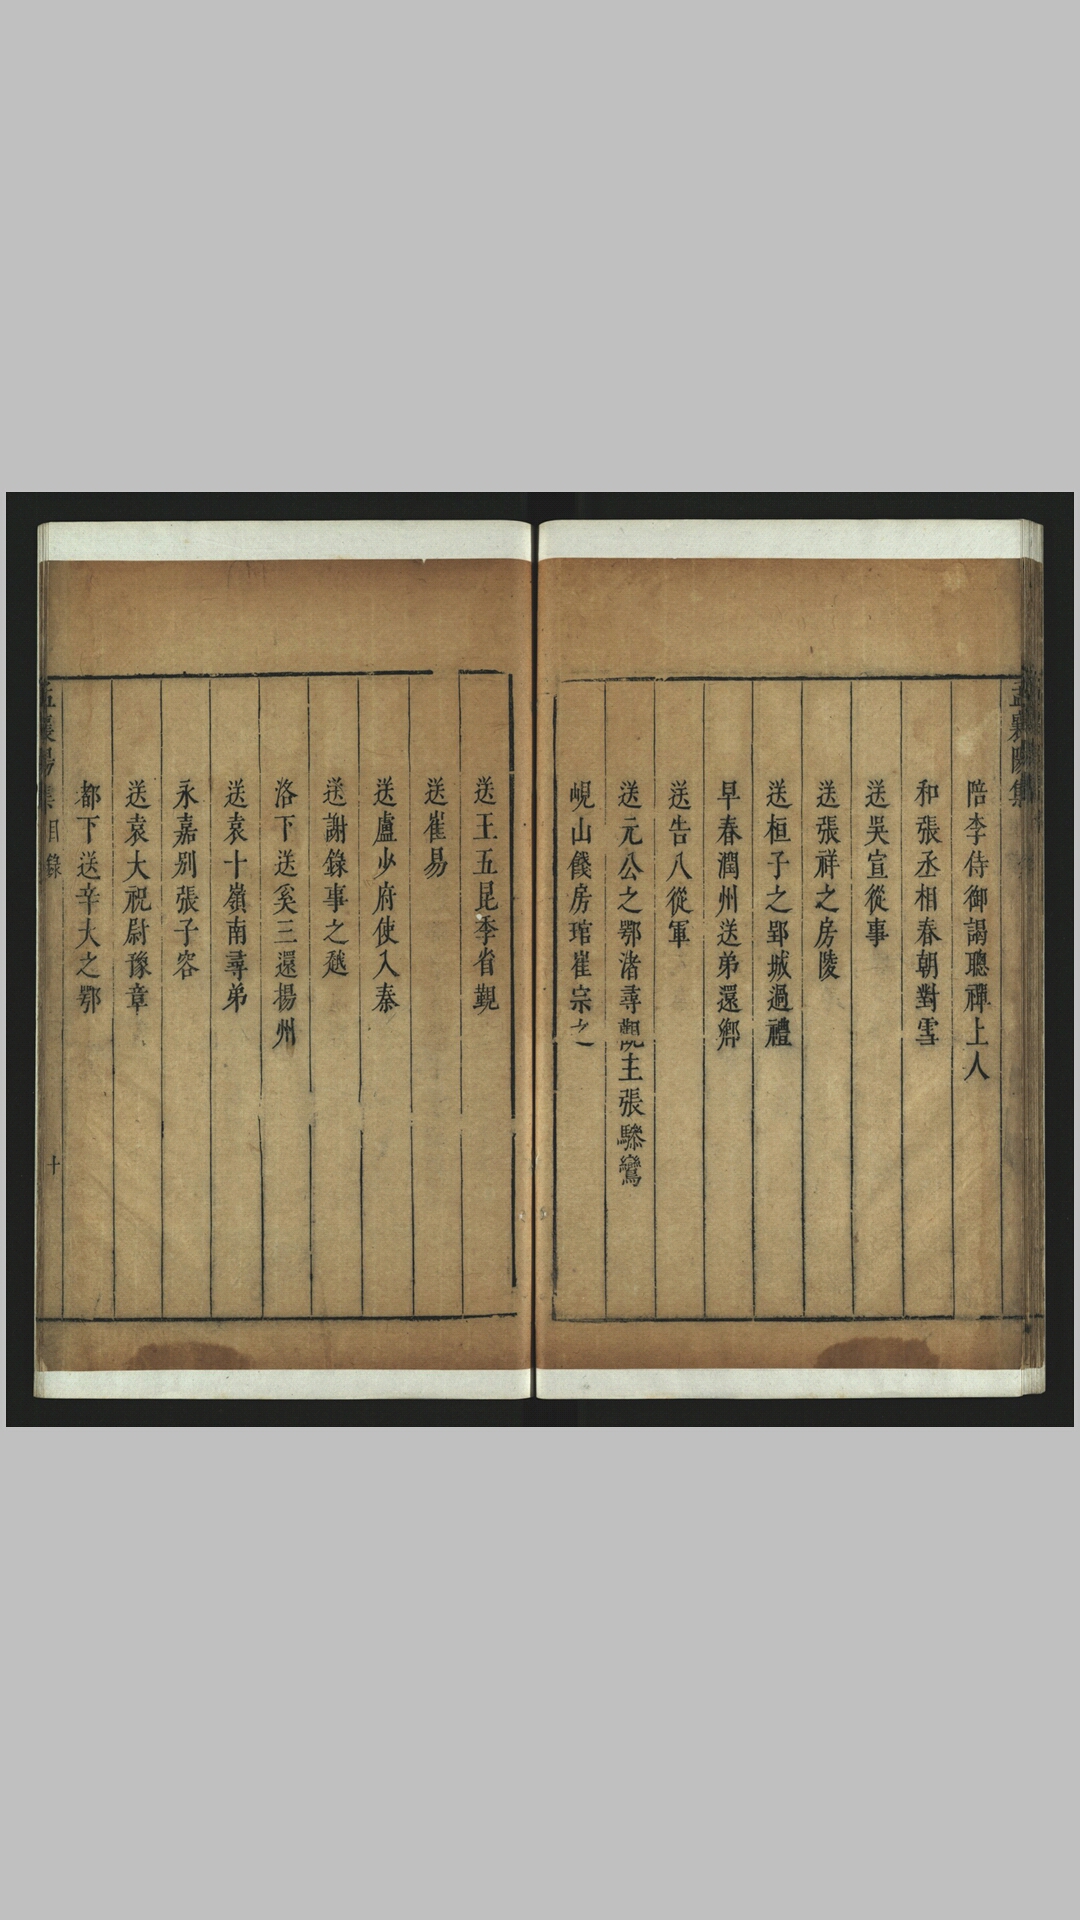 孟襄陽集
陪李侍御謁聰禪上人
和張丞相春朝對雪
送吳宣從事
送張祥之房陵
送桓子之郢城過禮
早春潤州送弟還鄉
送告八從軍
送元公之鄂渚尋觀主張驂鸞
峴山餞房琯崔宗之
送王五昆季省覲
送崔易
送盧少府使入秦
送謝錄事之越
洛下送奚三還揚州
送袁十嶺南尋弟
永嘉別張子容
送袁大祝尉豫章
都下送辛大之鄂
孟襄陽集 目錄 十